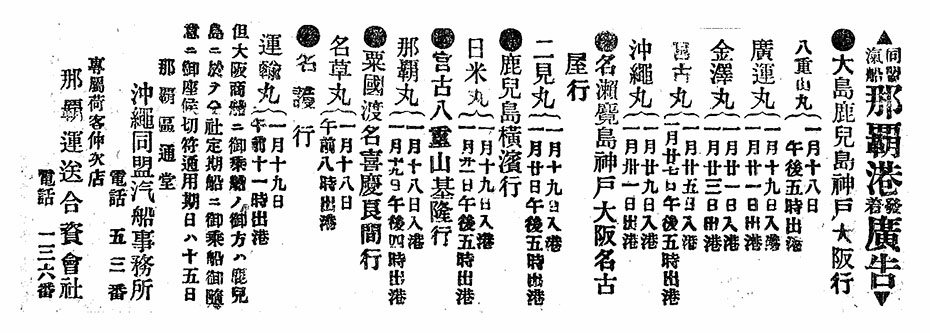 ▲同盟汽船那覇港發着廣告▼
●大島鹿兒島神戸大阪行
八重山丸 一月十八日午後五時出港
廣運丸 一月十九日入港 一月廿一日出港
金澤丸 一月廿一日入港 一月廿三日出港
宮古丸 一月廿五日入港 一月廿七日午後五時出港
沖繩丸 一月廿九日入港 一月卅一日出港
●名瀨鹿兒島神戸大阪名古
屋行
二見丸 一月十九日入港 一月廿日午後五時出港
●鹿兒島横濱行
日米丸 一月十九日入港 一月廿一日午後五時出港
●宮古八重山基隆行
那覇丸 一月十八日入港 一月十九日午後四時出港
●粟國渡名喜慶良間行
名草丸 一月十八日午前八時出港
●名護行
運輸丸 一月十九日午前十一時出港
但大阪商船ニ御乘船ノ御方ハ鹿兒
島ニ於テ社定期船ニ御乘船御隨
意ニ御座候切符通用期日ハ十五日
那覇區通堂
沖繩同盟汽船事務所
電話 五三番
專屬荷客仲次店
那覇運送合資會社
電話 一三六番